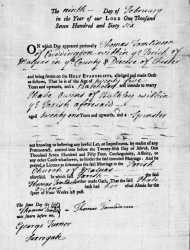 The ninth Day of February
in the Year of our LORD One Thousand
Seven Hundred and Sixty Six
ON which Day appeared personally Thomas Tomlinson
of within ye Parish of
Malpas in ye County & Diocese of Chester
and being sworn on the HOLY EVANGELISTS, alledged and made Oath
as follows, That he is of the Age of Twenty
Years and upwards, a Batchelor and intends to marry
of within
ye Parish aforesaid
aged twenty one Years and upwards, and a Spinster
not knowing or believing any lawful Let, or Impediment, by reason of any
Precontract, entered into before the Twenty-fifth Day of March, One
Thousand Seven Hundred and Fifty Four, Consanguinity, Affinity, or
any other Cause whatsoever, to hinder the said intended Marriage: And he
prayed a Licence to solemnize the said Marriage in the Parish
Church of Malpas
in which said
Thomas Tomlinson further made Oath, That the said
hath had her usual Abode for the
Space of four Weeks last past
The same Day the said
Thomas Tomlinson Thomas Tomlinson
was sworn before me,
George Turner
Surrogate